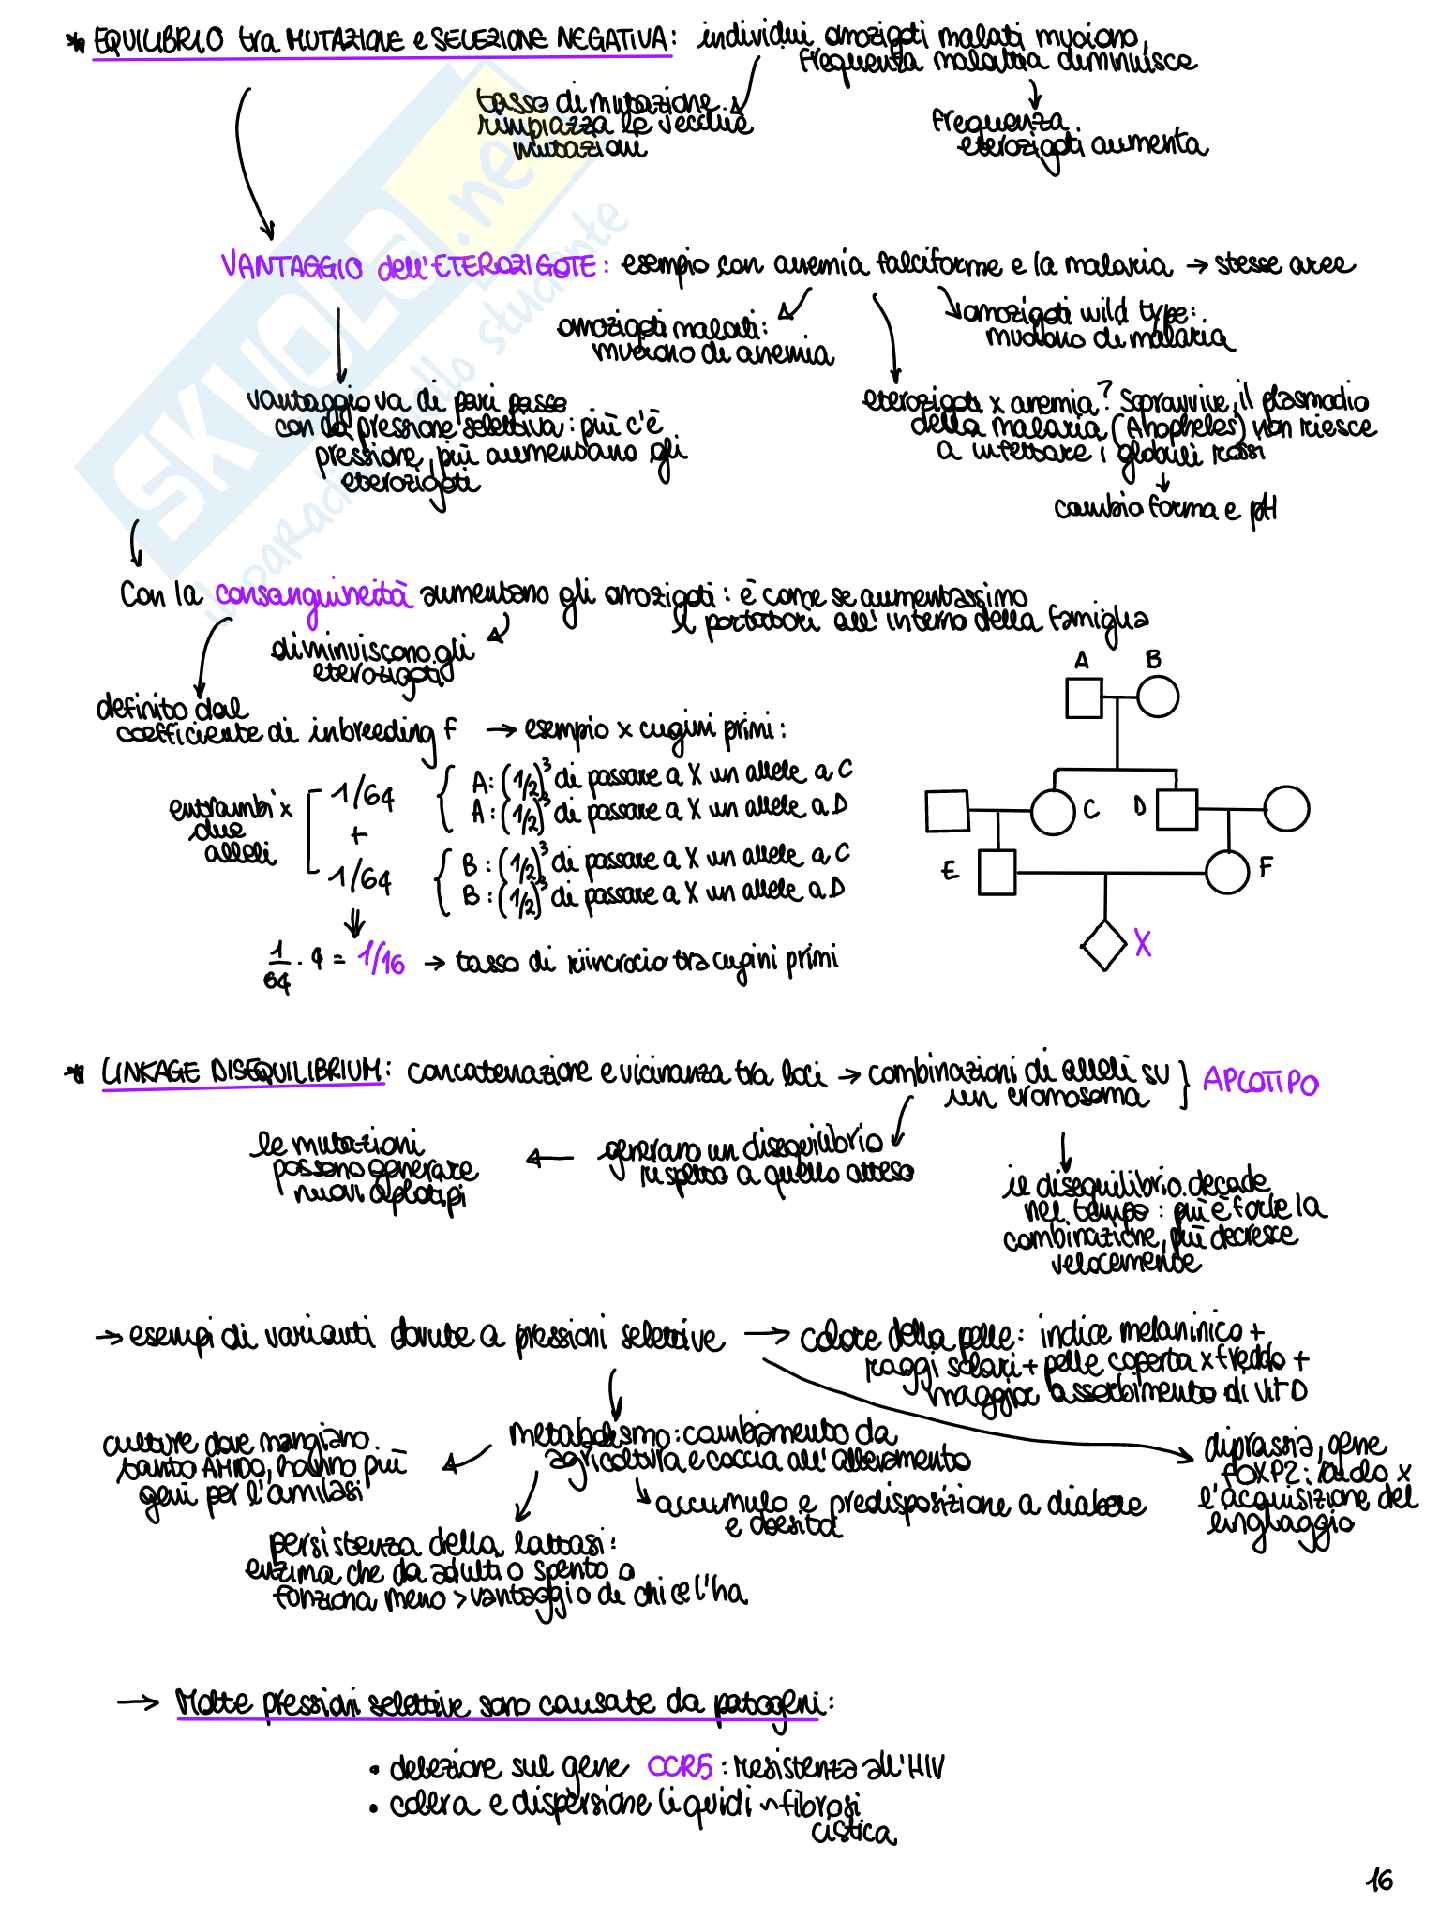 * EQUILIBRIO tra MUTAZIONE e SELEZIONE NEGATIVA: individui omozigoti malati muoiono,
frequenza malattia diminuisce
tasso di mutazione
rimpiazza le vecchie
mutazioni
frequenza
eterozigoti aumenta
VANTAGGIO dell'ETEROZIGOTE: esempio con anemia falciforme e la malaria → stesse aree
omozigoti malati:
muoiono di anemia
omozigoti wild type:
muoiono di malaria
vantaggio va di pari passo
con la pressione selettiva: più c'è
pressione, più aumentano gli
eterozigoti
eterozigoti x anemia? Sopravvive, il plasmodio
della malaria (Anopheles) non riesce
a infettare i globuli rossi
↓
cambio forma e pH
Con la consanguineità aumentano gli omozigoti: è come se aumentassimo
i portatori all'interno della famiglia
diminuiscono gli
eterozigoti
definito dal
coefficiente di inbreeding F → esempio x cugini primi:
entrambi x
due
alleli
1/64
+
1/64
A: (1/2)³ di passare a X un allele a C
A: (1/2)³ di passare a X un allele a D
B: (1/2)³ di passare a X un allele a C
B: (1/2)³ di passare a X un allele a D
1/64 · 4 = 1/16 → tasso di reincrocio tra cugini primi
A B
C D
E F
X
* LINKAGE DISEQUILIBRIUM: concatenazione e vicinanza tra loci → combinazioni di alleli su
un cromosoma } APLOTIPO
generano un disequilibrio
rispetto a quello atteso
le mutazioni
possono generare
nuovi aplotipi
il disequilibrio decade
nel tempo: più è forte la
combinazione, più decresce
velocemente
→ esempi di varianti dovute a pressioni selettive → colore della pelle: indice melaninico +
raggi solari + pelle coperta x freddo +
maggior assorbimento di vit D
metabolismo: cambiamento da
agricoltura e caccia all'allevamento
culture dove mangiano
tanto AMIDO, hanno più
geni per l'amilasi
accumulo e predisposizione a diabete
e obesità
diprassia, gene
FOXP2: ruolo x
l'acquisizione del
linguaggio
persistenza della lattasi:
enzima che da adulti o spento o
funziona meno > vantaggio di chi ce l'ha
→ Molte pressioni selettive sono causate da patogeni:
• delezione sul gene CCR5: resistenza all'HIV
• colera e dispersione liquidi ~ fibrosi
cistica
16
SKUOLA.net
il paradiso dello studente